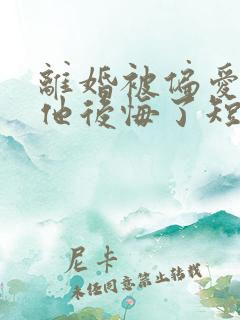 離婚被偏愛
他後悔了短
尼卡
未经同意禁止转载